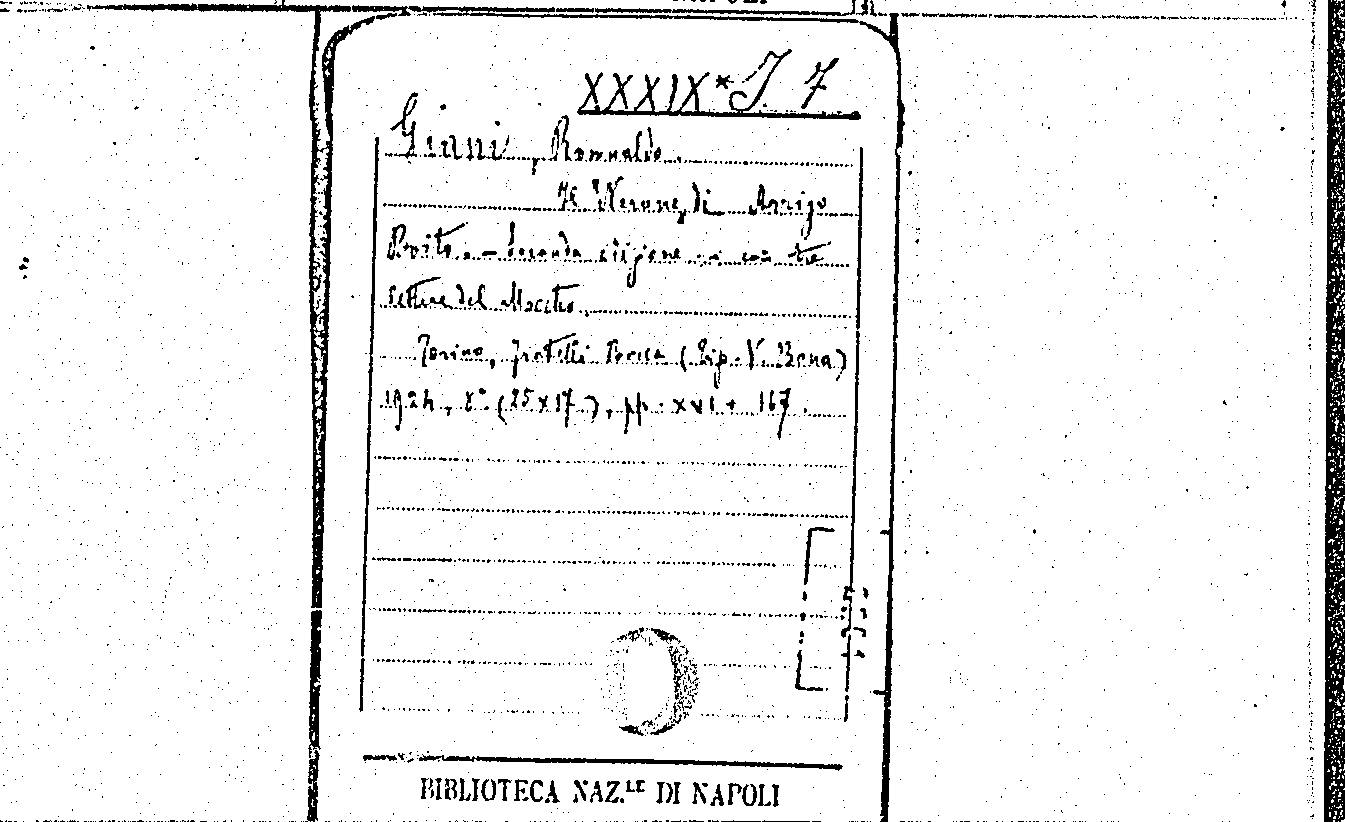 XXXIX * J 7
Giani, Romualdo.
Il "Nerone" di Arrigo
Boito. – Seconda edizione con tre
lettere del Maestro.
Torino, fratelli Bocca (Tip. V. Bona)
1924, 8° (25x17), pp. XVI + 167.
BIBLIOTECA NAZ.LE DI NAPOLI